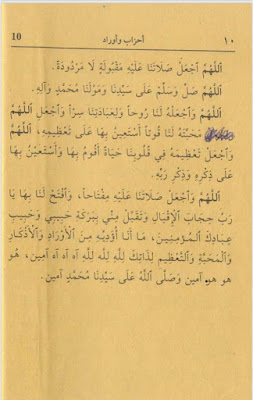 ١٠ أحزاب وأوراد 10
اَللّٰهُمَّ اجْعَلْ صَلَاتَنَا عَلَيْهِ مَقْبُولَةً لَا مَرْدُودَةً.
اَللّٰهُمَّ صَلِّ وَسَلِّمْ عَلَى سَيِّدِنَا وَمَوْلَنَا مُحَمَّدٍ وَآلِهِ.
اَللّٰهُمَّ وَاجْعَلْهُ لَنَا رُوحاً وَلِعِبَادَتِنَا سِرّاً وَاجْعَلِ اللّٰهُمَّ
مَحَبَّتَهُ لَنَا قُوتاً أَسْتَعِينُ بِهَا عَلَى تَعْظِيمِهِ، اَللّٰهُمَّ
وَاجْعَلْ تَعْظِيمَهُ فِي قُلُوبِنَا حَيَاةً أَقُومُ بِهَا وَأَسْتَعِينُ بِهَا
عَلَى ذِكْرِهِ وَذِكْرِ رَبِّهِ.
اَللّٰهُمَّ وَاجْعَلْ صَلَاتَنَا عَلَيْهِ مِفْتَاحاً، وَافْتَحْ لَنَا بِهَا يَا
رَبِّ حِجَابَ الْإِقْبَالِ وَتَقَبَّلْ مِنِّي بِبَرَكَةِ حَبِيبِي وَحَبِيبِ
عِبَادِكَ الْمُؤْمِنِينَ، مَا أَنَا أُؤَدِّيهِ مِنَ الْأَوْرَادِ وَالْأَذْكَارِ
وَالْمَحَبَّةِ وَالتَّعْظِيمِ لِذَاتِكَ لِلّٰهِ لِلّٰهِ لِلّٰهِ آه آه آه آمِين، هُوَ
هُو هُو آمين وَصَلَّى اللّٰهُ عَلَى سَيِّدِنَا مُحَمَّدٍ آمين.